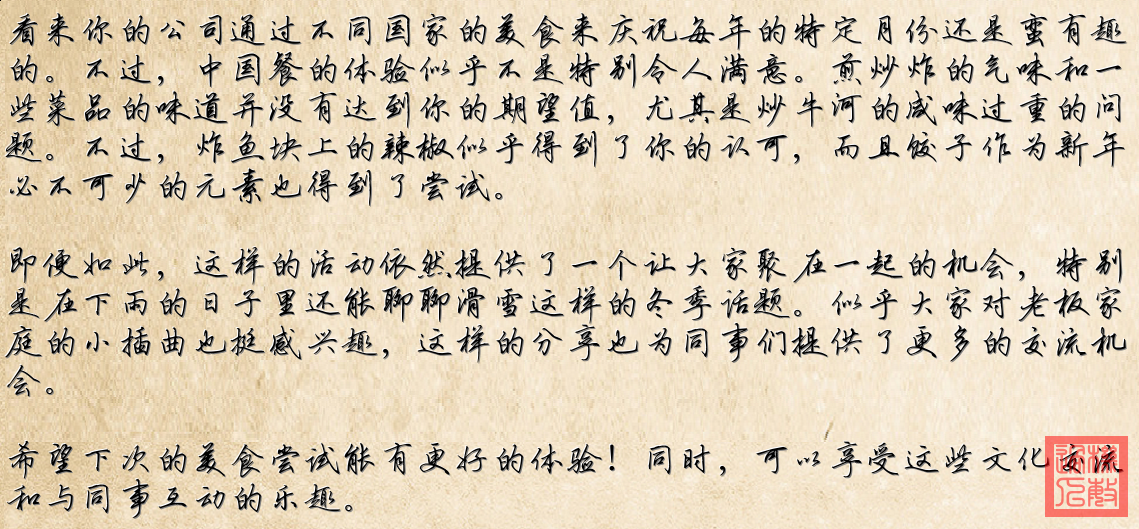 看来你的公司通过不同国家的美食来庆祝每年的特定月份还是蛮有趣
的。不过，中国餐的体验似乎不是特别令人满意。煎炒炸的气味和一
些菜品的味道并没有达到你的期望值，尤其是炒牛河的咸味过重的问
题。不过，炸鱼块上的辣椒似乎得到了你的认可，而且饺子作为新年
必不可少的元素也得到了尝试。
即便如此，这样的活动依然提供了一个让大家聚在一起的机会，特别
是在下雨的日子里还能聊聊滑雪这样的冬季话题。似乎大家对老板家
庭的小插曲也挺感兴趣，这样的分享也为同事们提供了更多的交流机
会。
希望下次的美食尝试能有更好的体验！同时，可以享受这些文化交流
和与同事互动的乐趣。